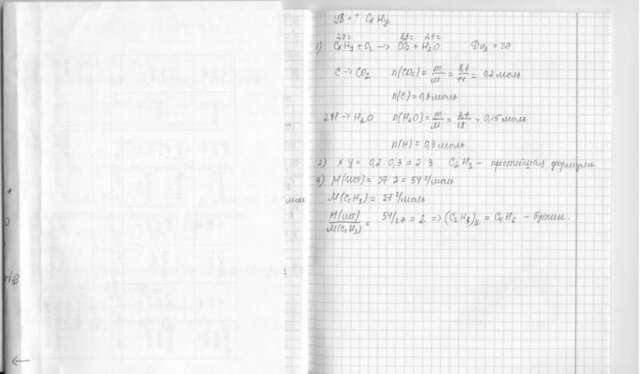 УВ - ? CxHy
2,8г 8,8г 2,7г
1) CxHy + O2 → CO2 + H2O
C → CO2 n(CO2) = m/M = 8,8/44 = 0,2 моль
n(C) = 0,2 моль
2H → H2O n(H2O) = m/M = 2,7/18 = 0,15 моль
n(H) = 0,3 моль
2) x y = 0,2 0,3 = 2 3 C2H3 - простейшая формула
3) M(ист) = 27 · 2 = 54 г/моль
M(C2H3) = 27 г/моль
M(ист)/M(C2H3) = 54/27 = 2 ⇒ (C2H3)2 = C4H6 -